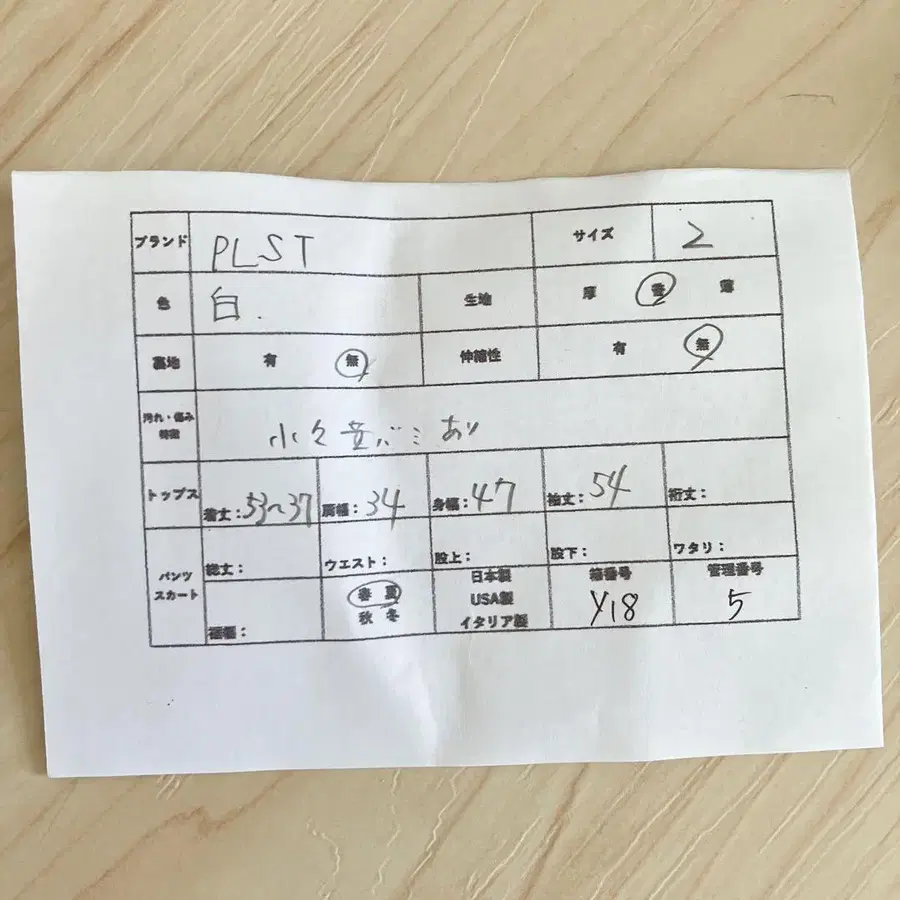 ブランド PLST サイズ 2
色 白. 生地 厚 普 薄
裏地 有 無 伸縮性 有 無
汚れ・傷み
特徴
小々黄バミあり
トップス 着丈：53〜37 肩幅：34 身幅：47 袖丈：54 裄丈：
パンツ
スカート
総丈： ウエスト： 股上： 股下： ワタリ：
裾幅：
春 夏
秋 冬
日本製
USA製
イタリア製
箱番号
Y18
管理番号
5